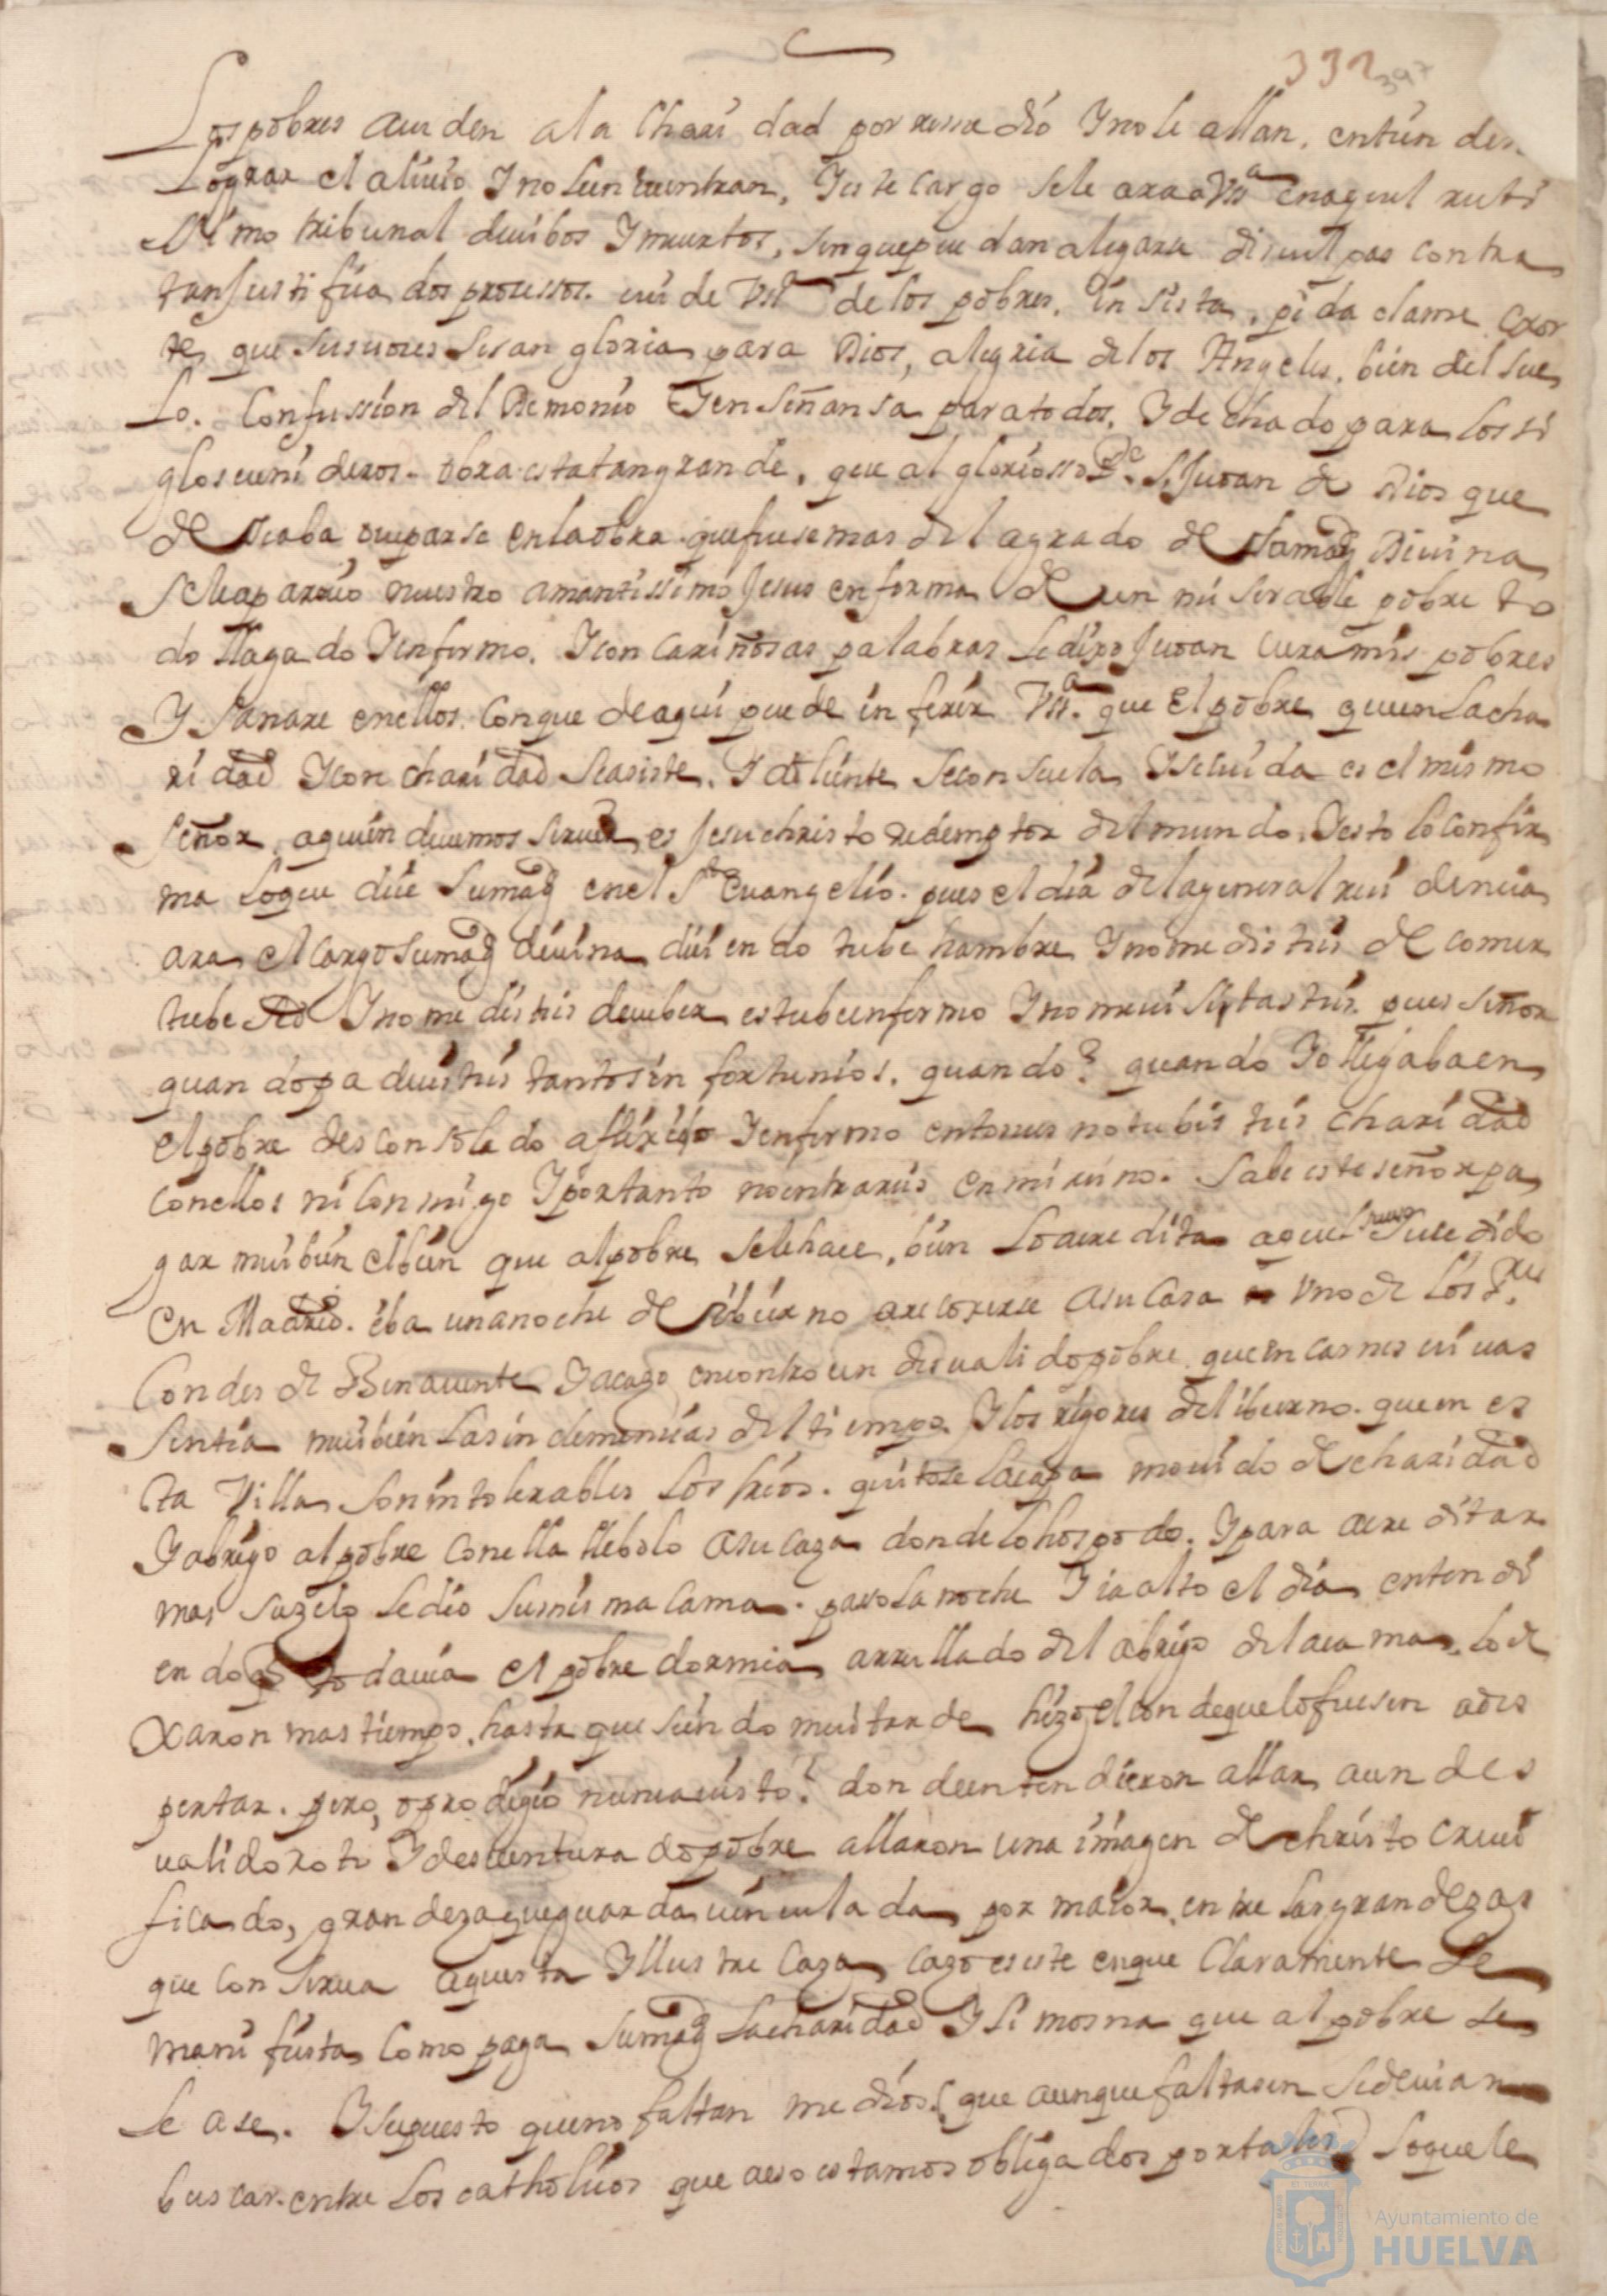 332 397
Los pobres acuden ala Charidad por remedio Ynole allan, entien den
Lograr el aliuio Ynolen cuentran, Yeste cargo sele ara a Vsª enaquel recti
ssimo tribunal deuibos Ymuertos, sin que pue dan alegara disculpas contra
tan justi fica dos processos. cui de Vsª de los pobres, in sista, pida clame exor
te, que sus uoces seran gloria para Dios, alegria delos Angeles, bien del sue
lo. Confussion del Demonio Yen señansa para todos, Yde chado para los si
glos ueni deros. obra esta tan grande, que al gloriosso Pe. S. Juan de Dios que
de seaba ocuparse en la obra que fuese mas del agrado de su magd Diuina
sele aparecio nuestro amantissimo Jesus en forma de un mi serable pobre to
do llaga do Yenfermo. Ycon cariñosas palabras le dixo Juan cura mis pobres
Y sanare enellos. Con que de aqui pue de in ferir Vsª. que el pobre quien la cha
ridad Ycon charidad se asiste. Y doliente se con suela Yse cuida es el mismo
señor, aquien deuemos seruir es Jesu christo redemptor del mundo. Yesto lo confir
ma lo que dice su magd en el sto euangelio. pues el dia de la general resi dencia
ara el cargo su magd diuina dici en do tube hambre Yno me distis de comer
tube sed Yno me distis deueber estube enfermo Yno me uisitastis. pues señor
quan do pa decistis tantos in fortunios. quando? quando Yo llegaba en
el pobre des con sola do aflixido Yenfermo entonces no tubis tis charidad
con ellos ni con mi go Ypor tanto no entrareis en mi reino. Sabe este señor pa
gar mui bien el bien que al pobre sele hace, bien lo acre dita aquel suceso suce dido
en Madrid. iba una noche de ibier no a recoxerse asu casa uno de los sres.
Condes de Benauente Yacazo encontro un desuali do pobre, que en carnes ui uas
sentia mui bien las in clemencias del tiempo Ylos rigores del ibierno. que en es
ta Villa son in tolerables los frios. quitose la capa mouido de charidad
Yabrigo al pobre con ella llebolo asu caza donde lo hospe do. Ypara acre ditar
mas su zelo le dio su mis ma cama. paso la noche Y ia alto el dia enten di
en do qe to dauia el pobre dormia arrullado del abrigo de la ca ma, lo de
xaron mas tiempo, hasta que sien do mui tarde hizo el con de que lo fuesen a des
pertar. pero, o pro digio nunca uisto! don de en ten dieron allar aun des
ualido roto Ydes uentura do pobre allaron una imagen de christo cruci
ficado, gran deza que guar da uin cu la da por maior, en tre las gran dezas
que con serua aques ta Yllus tre Caza, cazo es este en que Claramente se
mani fiesta como paga su magd la charidad Ylimosna que al pobre se
le ase. Ysupuesto que no faltan me dios (que aunque faltasen se deuian
bus car. entre los catholicos que a eso estamos obliga dos por tales) lo que le
Ayuntamiento de
HUELVA